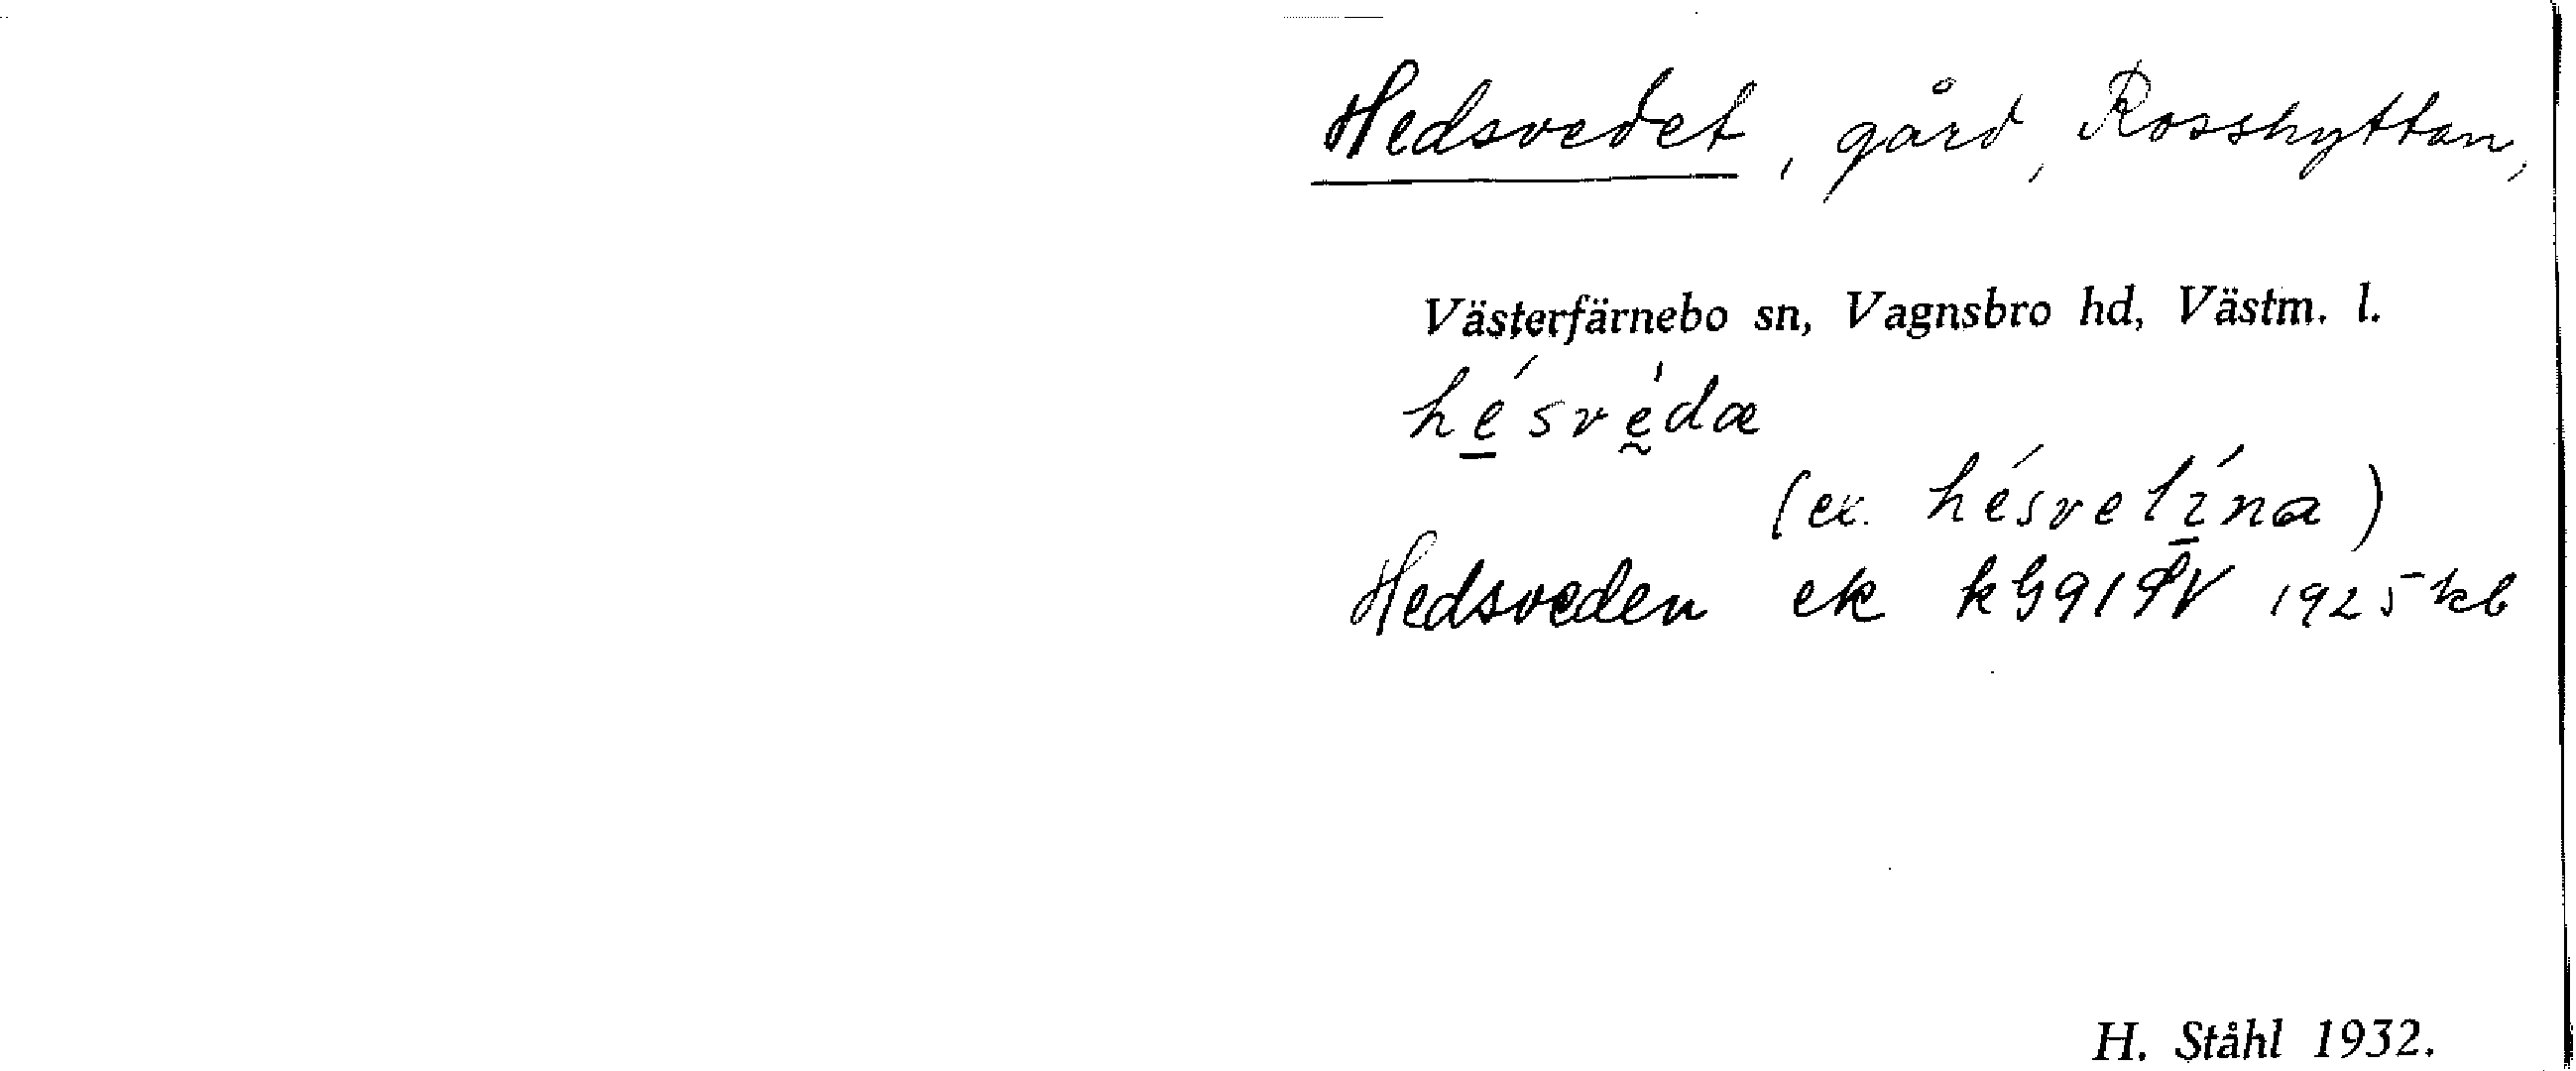 Hedsvedet, gård, Rosshyttan,
Västerfärnebo sn, Vagnsbro hd, Västm. l.
hésvèdæ
(ex. hésvelína)
Hedsveden ek 1925 kb
H. Ståhl 1932.